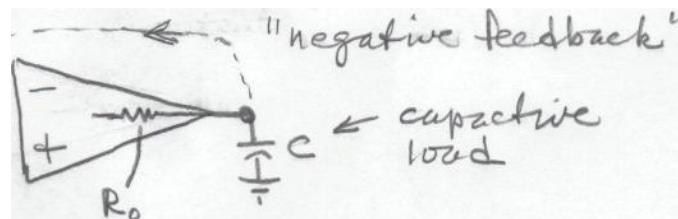 "negative feedback"
−
+
C
← capactive
load
R₀